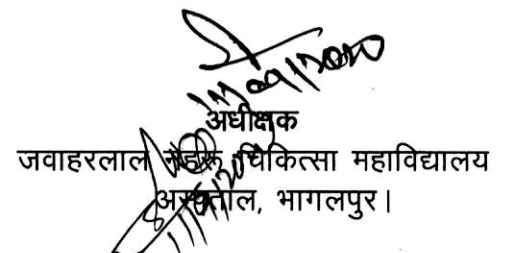 अधीक्षक
जवाहरलाल नेहरू चिकित्सा महाविद्यालय
अस्पताल, भागलपुर।